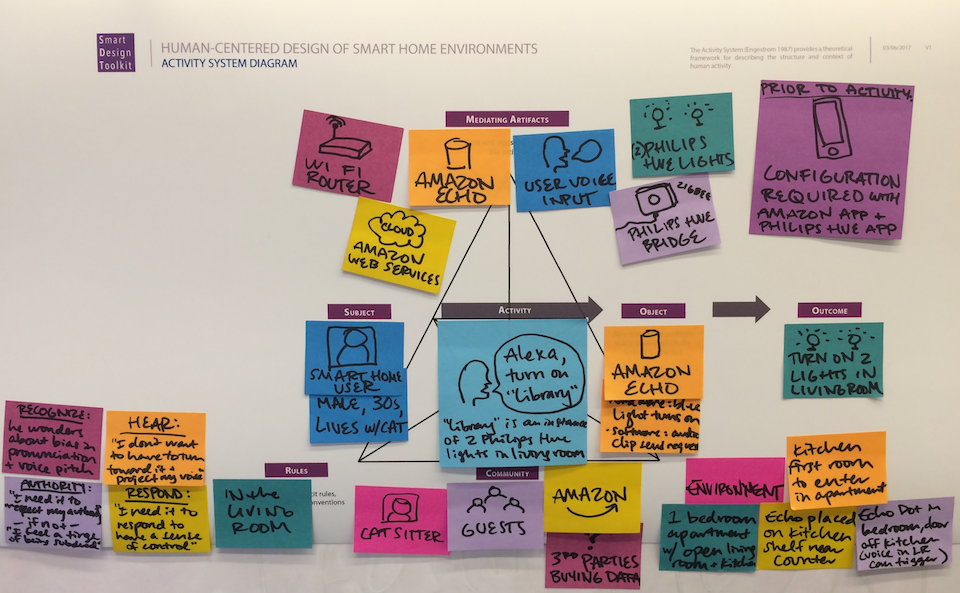 Smart
Design
Toolkit
HUMAN-CENTERED DESIGN OF SMART HOME ENVIRONMENTS
ACTIVITY SYSTEM DIAGRAM
The Activity System (Engestrom 1987) provides a theoretical
framework for describing the structure and context of
human activity.
03/06/2017 V1
MEDIATING ARTIFACTS
WIFI
ROUTER
AMAZON
ECHO
USER VOICE
INPUT
(2) PHILIPS
HUE LIGHTS
PRIOR TO ACTIVITY:
CONFIGURATION
REQUIRED WITH
AMAZON APP +
PHILIPS HUE APP
CLOUD
AMAZON
WEB SERVICES
ZIGBEE
PHILIPS HUE
BRIDGE
SUBJECT
ACTIVITY
OBJECT
OUTCOME
SMART HOME
USER
MALE, 30s,
LIVES W/CAT
Alexa,
turn on
"Library"
"Library" is an instance
of 2 Philips Hue
lights in living room
AMAZON
ECHO
light turns on
- software: audio
clip send request
TURN ON 2
LIGHTS IN
LIVINGROOM
RECOGNIZE:
he wonders
about bias in
pronunciation
+ voice pitch
HEAR:
"I don't want
to have to turn
toward it +
project my voice"
AUTHORITY:
"I need it to
respect my authority
— if not —
"I feel a tinge
of being
RESPOND:
"I need it to
respond to
have a sense
of control"
RULES
cit rules,
onventions
IN the
LIVING
ROOM
COMMUNITY
CAT SITTER
GUESTS
AMAZON
3RD PARTIES
BUYING DATA
ENVIRONMENT
Kitchen
first room
to enter in
apartment
1 bedroom
apartment
w/ open living
room + kitchen
Echo placed
on kitchen
shelf near
counter
Echo Dot in
bedroom, door
off kitchen
(voice in LR
can trigger)